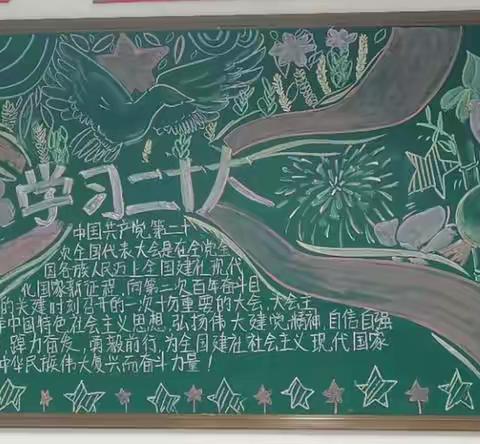 学习二十大
中国共产党第二十
次全国代表大会是在全党全
国各族人民迈上全国建社现代
化国家新征程,向第二次百年奋斗目
的关建时刻召开的一次十分重要的大会,大会主
中国特色社会主义思想,弘扬伟大建党精神,自信自强
踔力奋发,勇毅前行,为全国建社社会主义现代国家
中华民族伟大复兴而奋斗力量!